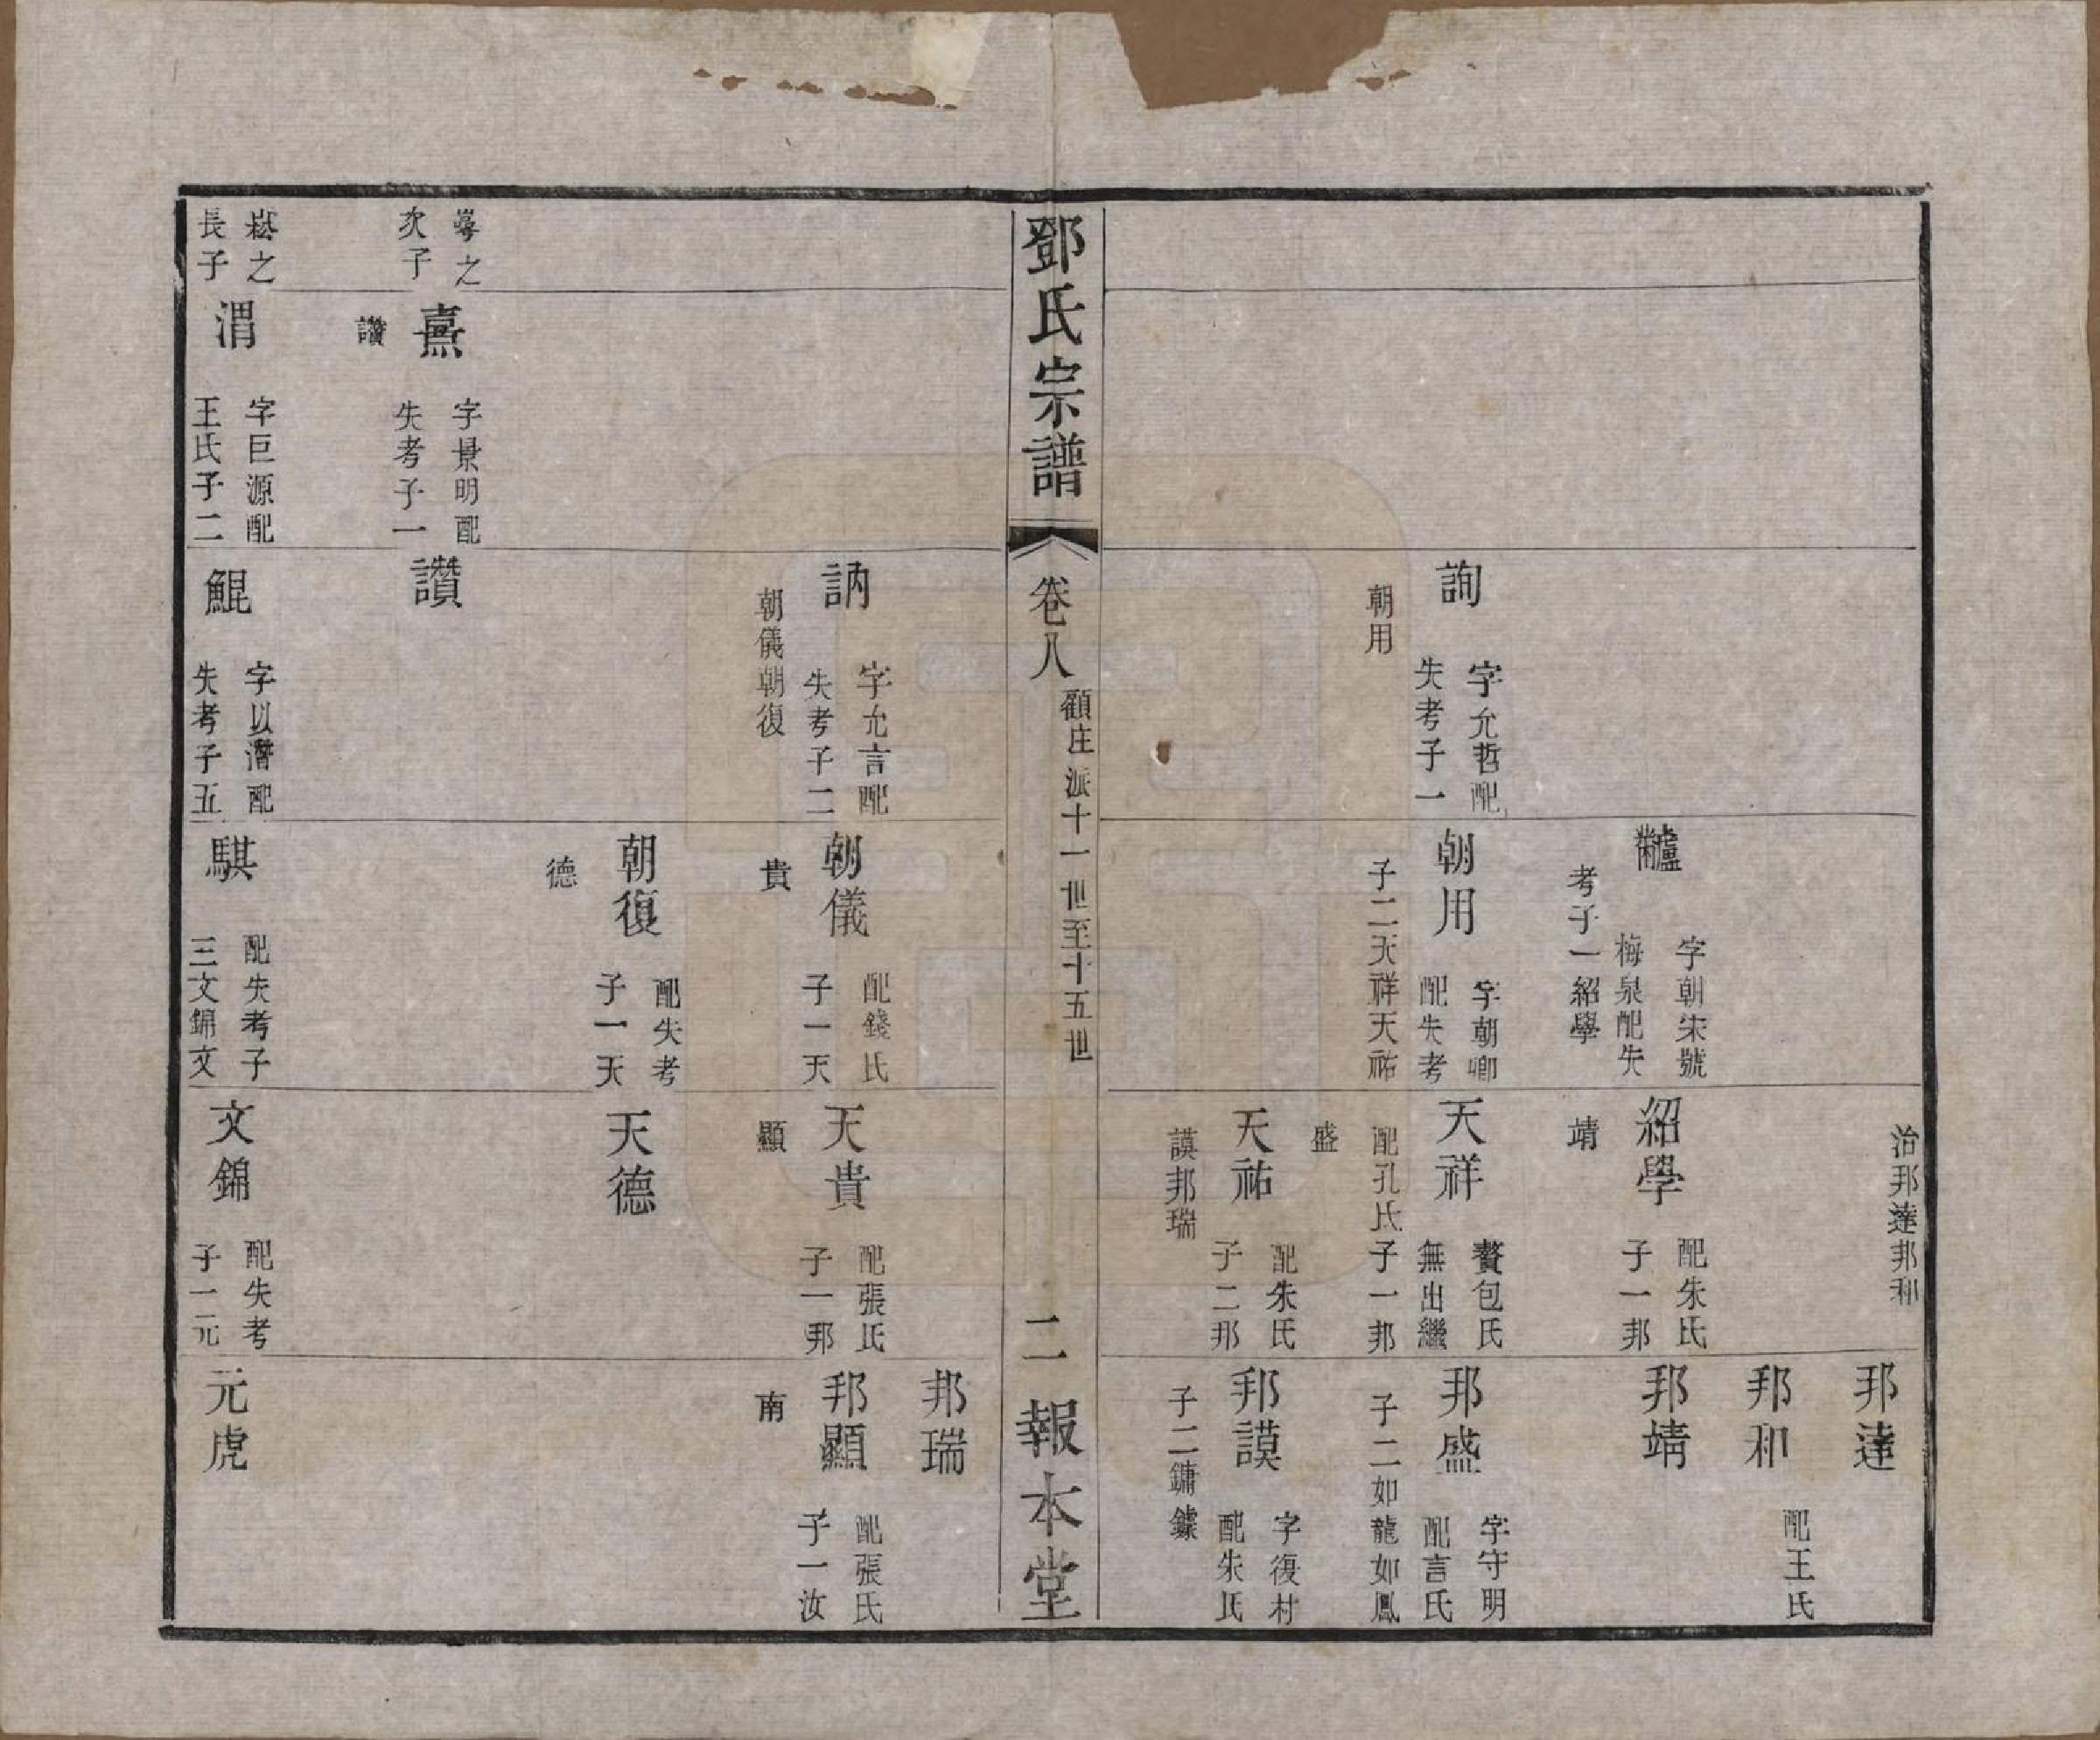 治邦達邦和
邦達
邦和
配王氏
字朝宋號
梅泉配失
考子一紹學
紹學
配朱氏
子一邦
靖
邦靖
詢
字允哲配
失考子一
朝用
朝用
字朝卿
配失考
子二天祥天祐
天祥
贅包氏
無出繼
配孔氏子一邦
盛
邦盛
字守明
配言氏
子二如龍如鳳
天祐
配朱氏
子二邦
謨邦瑞
邦謨
字復村
配朱氏
子二鏞鑅
鄧氏宗譜
卷八
顧庄派十一世至十五世
二
報本堂
邦瑞
訥
字允言配
失考子二
朝儀朝復
朝儀
配錢氏
子一天
貴
天貴
配張氏
子一邦
顯
邦顯
配張氏
子一汝
南
朝復
配失考
子一天
德
天德
之
次子
熹
字景明配
失考子一
讚
讚
崧之
長子
渭
字巨源配
王氏子二
鯤
字以潛配
失考子五
騏
配失考子
三文錦文
文錦
配失考
子一元
元虎